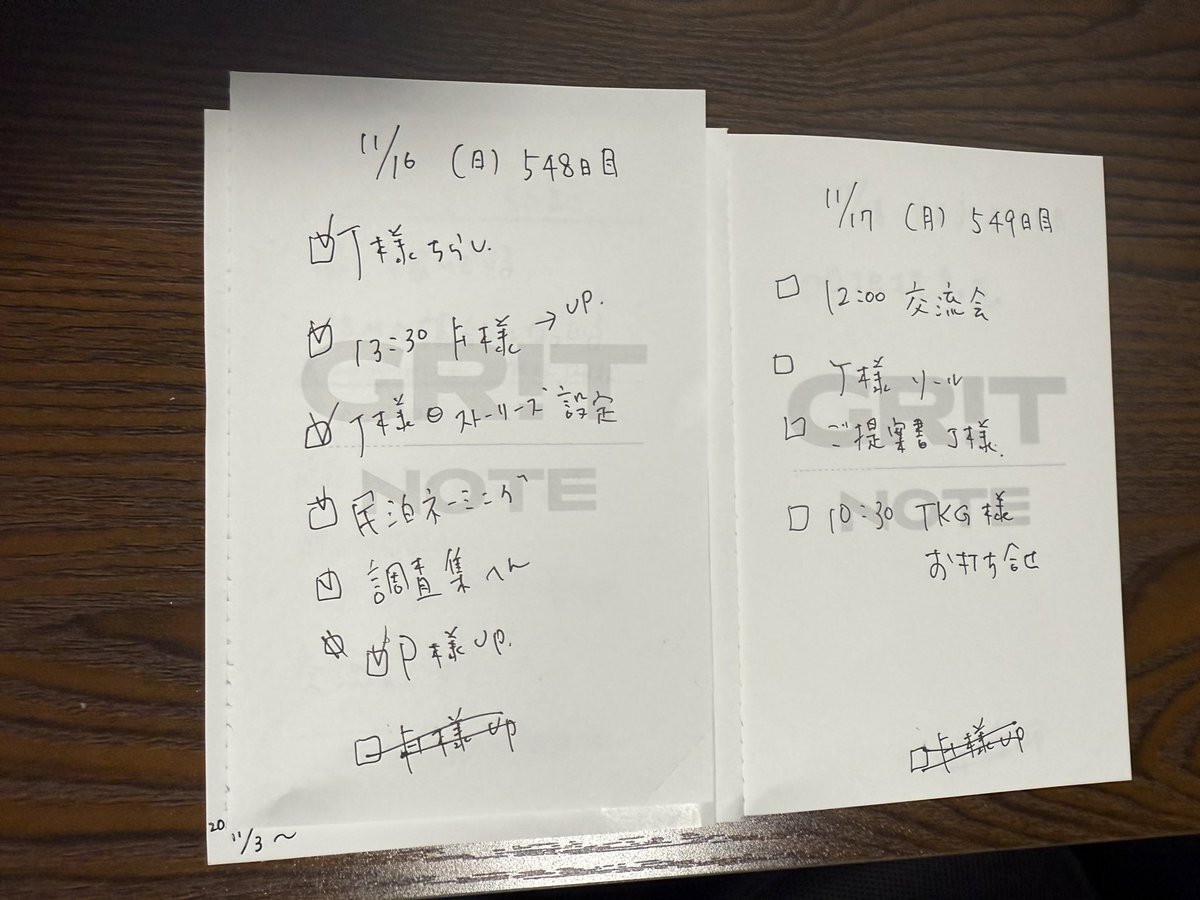 11/16 (日) 548日目
T様ちらし
13:30 様 → UP.
T様 ストーリーズ設定
民泊ネーミング
調査集へん
P様UP.
様UP
20 11/3〜
GRIT
NOTE
11/17 (月) 549日目
12:00 交流会
様 リール
ご提案書 J様
10:30 TKG様
お打ち合せ
様UP
GRIT
NOTE